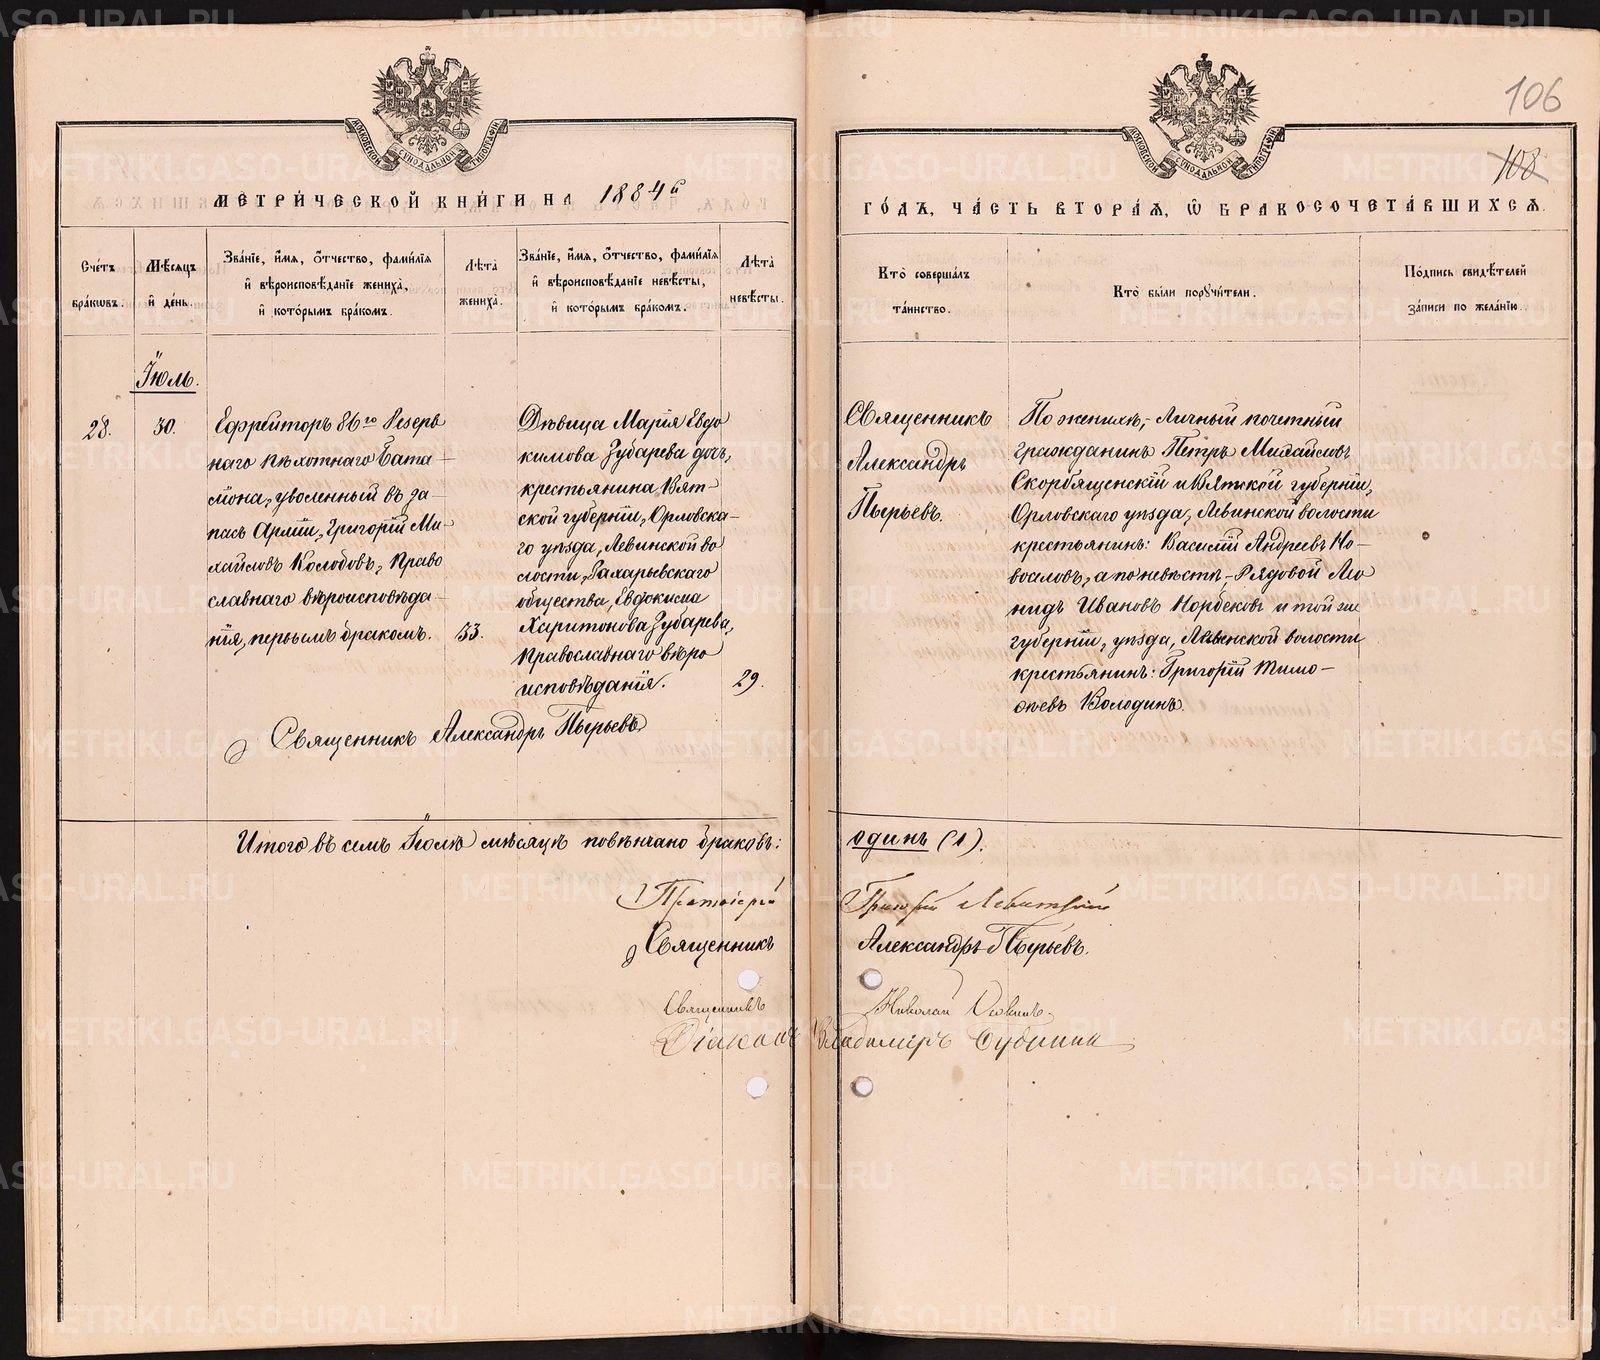 МОСКОВСКОЙ СУНОДАЛЬНОЙ ТИПОГРАФІИ
МЕТРИЧЕСКОЙ КНИГИ НА 1884й
Счетъ браковъ.
Мѣсяцъ и день.
Званіе, имя, отчество, фамилія и вѣроисповѣданіе жениха, и которымъ бракомъ.
Лѣта жениха.
Званіе, имя, отчество, фамилія и вѣроисповѣданіе невѣсты, и которымъ бракомъ.
Лѣта невѣсты.
Іюль.
28.
30.
Ефрейторъ 86го Резерв
наго пѣхотнаго Бата
ліона, уволенный въ за
пасъ Арміи, Григорій Ми
хайловъ Колобовъ, Право
славнаго вѣроисповѣда
нія, первымъ бракомъ.
33.
Дѣвица Марія Евдо
кимова Зубарева дочь,
крестьянина, Вят
ской губерніи, Орловска
го уѣзда, Левинской во
лости, Захарьевскаго
общества, Евдокима
Харитонова Зубарева,
Православнаго вѣро
исповѣданія.
29.
Священникъ Александръ Пырьевъ
Итого въ семъ Іюлѣ мѣсяцѣ повѣнчано браковъ:
Протоіерей
Священникъ
Священникъ
Діаконъ
106
108
МОСКОВСКОЙ СУНОДАЛЬНОЙ ТИПОГРАФІИ
ГОДЪ, ЧАСТЬ ВТОРАЯ, Ѡ БРАКОСОЧЕТАВШИХСЯ.
Кто совершалъ таинство.
Кто были поручители.
Подпись свидѣтелей записи по желанію.
Священникъ
Александръ
Пырьевъ.
По женихѣ,- Личный почетный
гражданинъ Петръ Михайловъ
Скорбященскій и Вятской губерніи,
Орловскаго уѣзда, Левинской волости
крестьянинъ: Василій Андреевъ Но-
воселовъ, а по невѣстѣ,- Рядовой Лео
нидъ Ивановъ Корбековъ и той же
губерніи, уѣзда, Левинской волости
крестьянинъ: Григорій Тимо-
ѳеевъ Володинъ.
одинъ (1).
Григорій Левитскій
Александръ Пырьевъ.
Николай
Владимиръ
METRIKI.GASO-URAL.RU